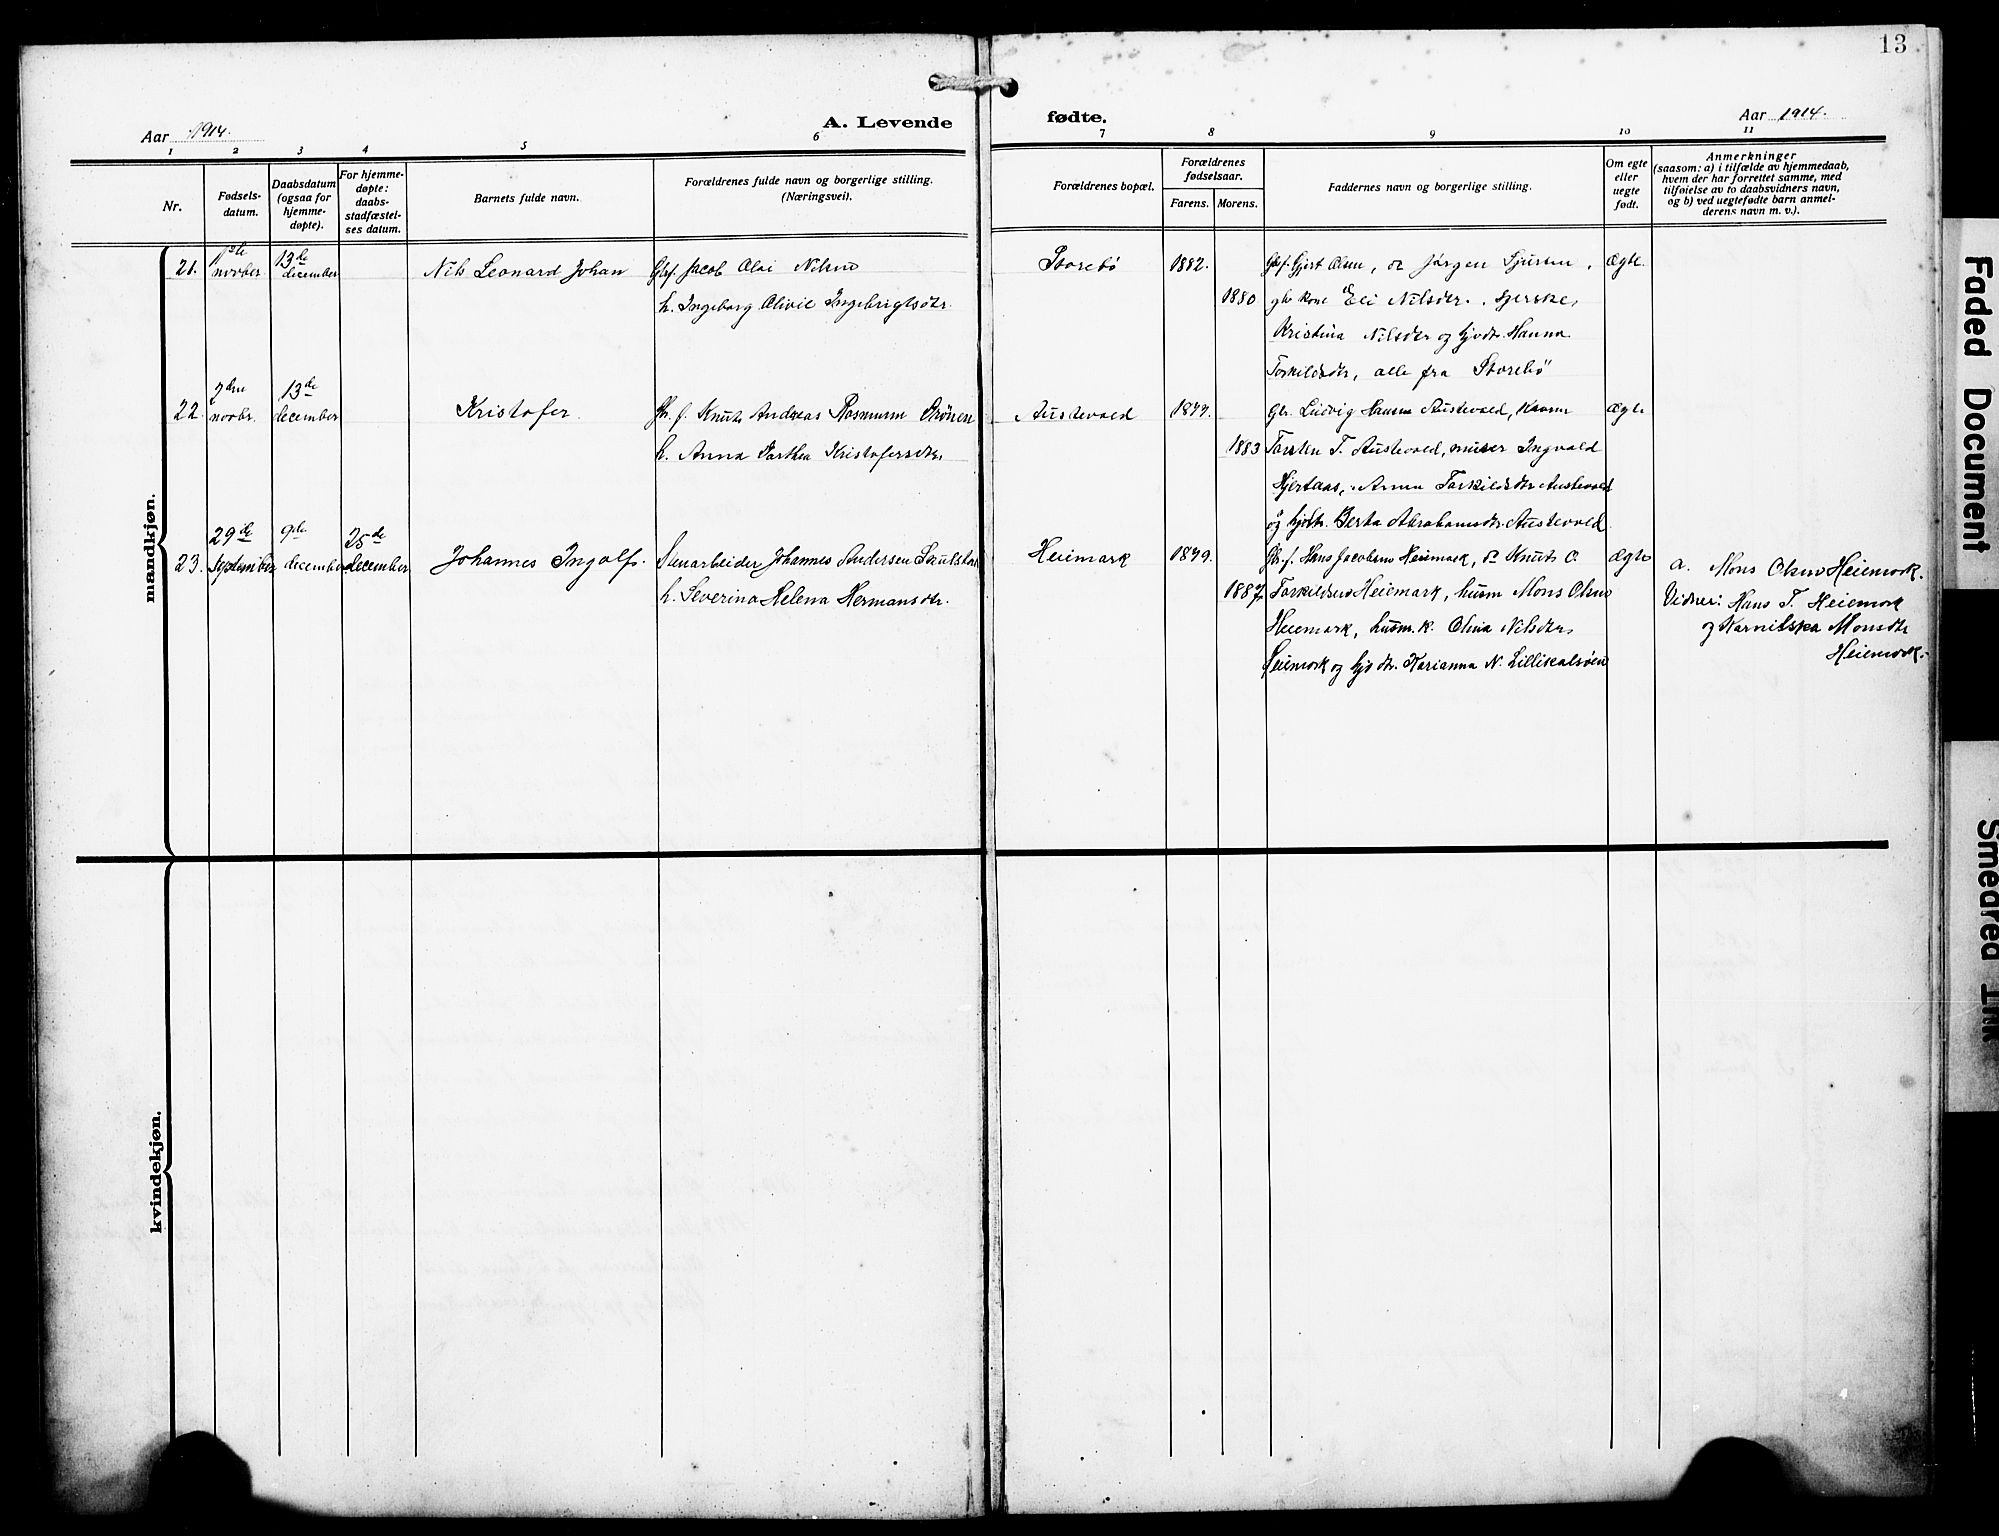 13
Aar 1914.
A. Levende
fødte.
Aar 1914.
1 2 3 4 5 6 7 8 9 10 11
Nr.
Fødsels-
datum.
Daabsdatum
(ogsaa for
hjemme-
døpte).
For hjemme-
døpte:
daabs-
stadfæstel-
ses datum.
Barnets fulde navn.
Forældrenes fulde navn og borgerlige stilling.
(Næringsvei).
Forældrenes bopæl.
Forældrenes
fødselsaar.
Farens. Morens.
Faddernes navn og borgerlige stilling.
Om egte
eller
uegte
født.
Anmerkninger
(saasom: a) i tilfælde av hjemmedaab,
hvem der har forrettet samme, med
tilføielse av to daabsvidners navn,
og b) ved uegtefødte barn anmel-
derens navn m. v.).
mandkjøn.
21. novber 13de december Nils Leonard Johan Gbf. Jacob Olai Nilsen
h. Ingeborg Olivie Ingebrigtsdtr
Storebö 1882.
1880
Gbf. Gjert Olsen, Jörgen Sjursen, ægte.
gb. kone Eli Nilsdtr.
Kristina Nilsdtr og Hanna
Torkildsdtr, alle fra Storebö
22. 2den novbr. 13de december Kristofer. f. Knut Andreas Rasmusen
h. Anna Dorthea Kristofersdtr
Austevold
1883
Ludvig Hansen Austevold, ægte
Torsten T. Austevold, murer Ingvald
Hjertaas, Anna Torkildsdtr Austevold
og Berta Abrahamsdtr. Austevold.
23. 29de September 9de december 25de december Johannes Ingolf. Stenarbeider Johannes Andersen
h. Severina Helena Hermansdtr.
Heimark 1879.
1887
f. Hans Jacobsen Heimark, Knut O. ægte
Torkildsen Heiemark, husm Mons Olsen
Heiemark, husm. k. Olina Nilsdtr
Heiemark og Karianna N. Lillikalsöen
a. Mons Olsen Heiemark.
Vidner: Hans T. Heiemark
og Monsdtr
Heiemark.
kvindekjøn.
Faded Document
Smeared Ink